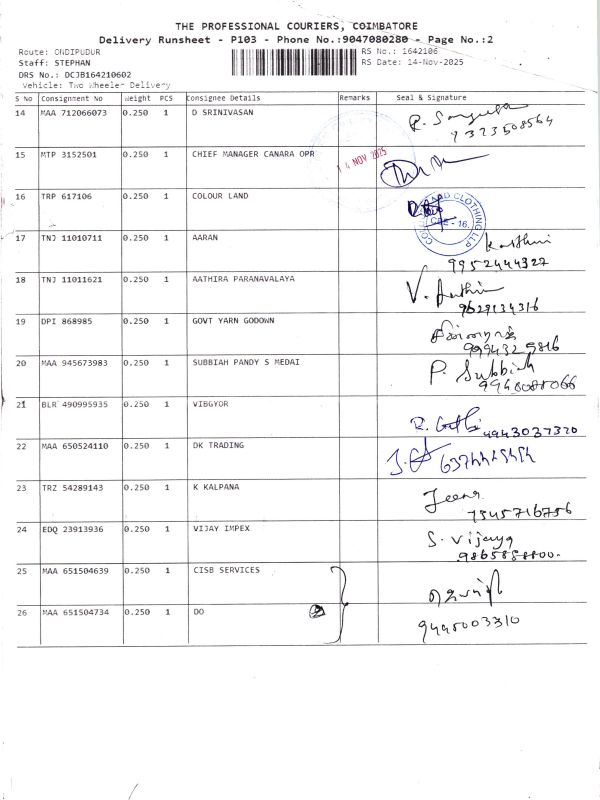 THE PROFESSIONAL COURIERS, COIMBATORE
Delivery Runsheet - P103 - Phone No.:9047080280 - Page No.:2
Route: ONDIPUDUR RS No.: 1642106
Staff: STEPHAN RS Date: 14-Nov-2025
DRS No.: DCJB164210602
Vehicle: Two Wheeler Delivery
S No Consignment No Weight PCS Consignee Details Remarks Seal & Signature
14 MAA 712066073 0.250 1 D SRINIVASAN
7323508564
15 MTP 3152501 0.250 1 CHIEF MANAGER CANARA OPR 14 NOV 2025
16 TRP 617106 0.250 1 COLOUR LAND
CLOTHING LLP
17 TNJ 11010711 0.250 1 AARAN
9952444327
18 TNJ 11011621 0.250 1 AATHIRA PARANAVALAYA
9629134316
19 DPI 868985 0.250 1 GOVT YARN GODOWN
9994329816
20 MAA 945673983 0.250 1 SUBBIAH PANDY S MEDAI P. Subbiah
21 BLR 490995935 0.250 1 VIBGYOR
22 MAA 650524110 0.250 1 DK TRADING
23 TRZ 54289143 0.250 1 K KALPANA
24 EDQ 23913936 0.250 1 VIJAY IMPEX S. Vijaya
9865858800
25 MAA 651504639 0.250 1 CISB SERVICES
26 MAA 651504734 0.250 1 DO